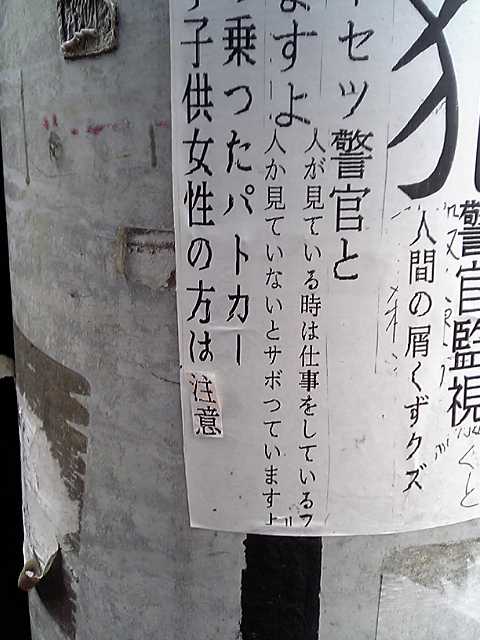 警官監視
人間の屑くずクズ
セツ警官と
人が見ている時は仕事をしているフ
すよ
人か見ていないとサボつていますよ
乗つたパトカー
子供女性の方は注意